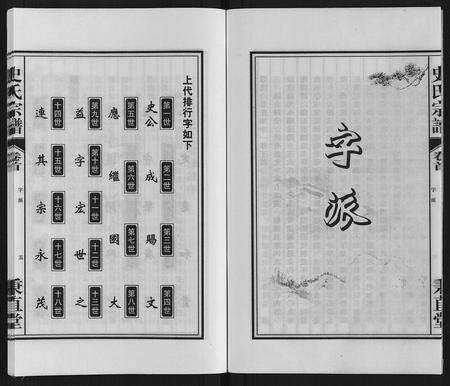 史氏宗譜
卷首
字派
秉直堂
字派
上代排行字如下
第一世 第二世 第三世 第四世
史公 成 賜 文
第五世 第六世 第七世 第八世
應 繼 國 大
第九世 第十世 十一世 十二世 十三世
益 字 宏 世 之
十四世 十五世 十六世 十七世 十八世
連 其 宗 永 茂
史氏宗譜
卷首
字派
五
秉直堂